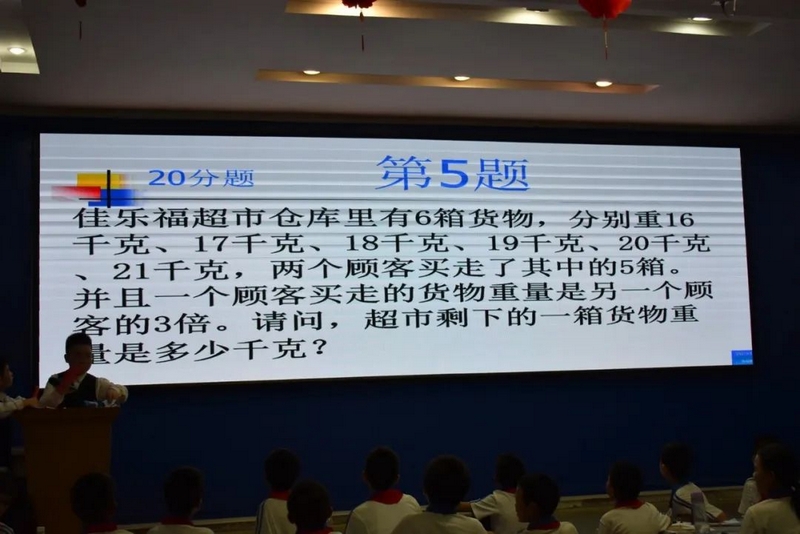 20分题
第5题
佳乐福超市仓库里有6箱货物，分别重16
千克、17千克、18千克、19千克、20千克
、21千克，两个顾客买走了其中的5箱。
并且一个顾客买走的货物重量是另一个顾
客的3倍。请问，超市剩下的一箱货物重
量是多少千克？